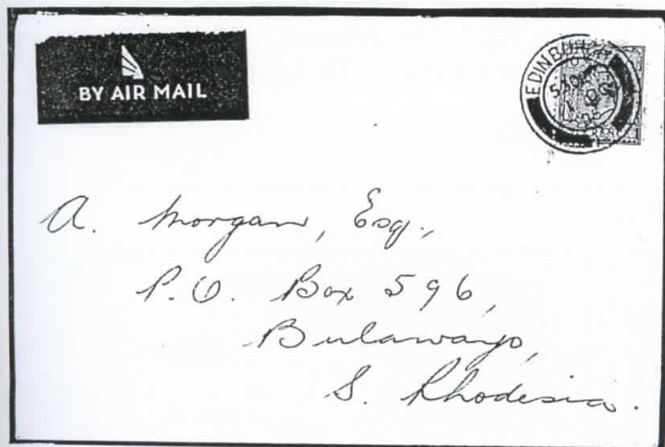 BY AIR MAIL
EDINBURGH
A. Morgan, Esq.,
P.O. Box 596,
Bulawayo,
S. Rhodesia.